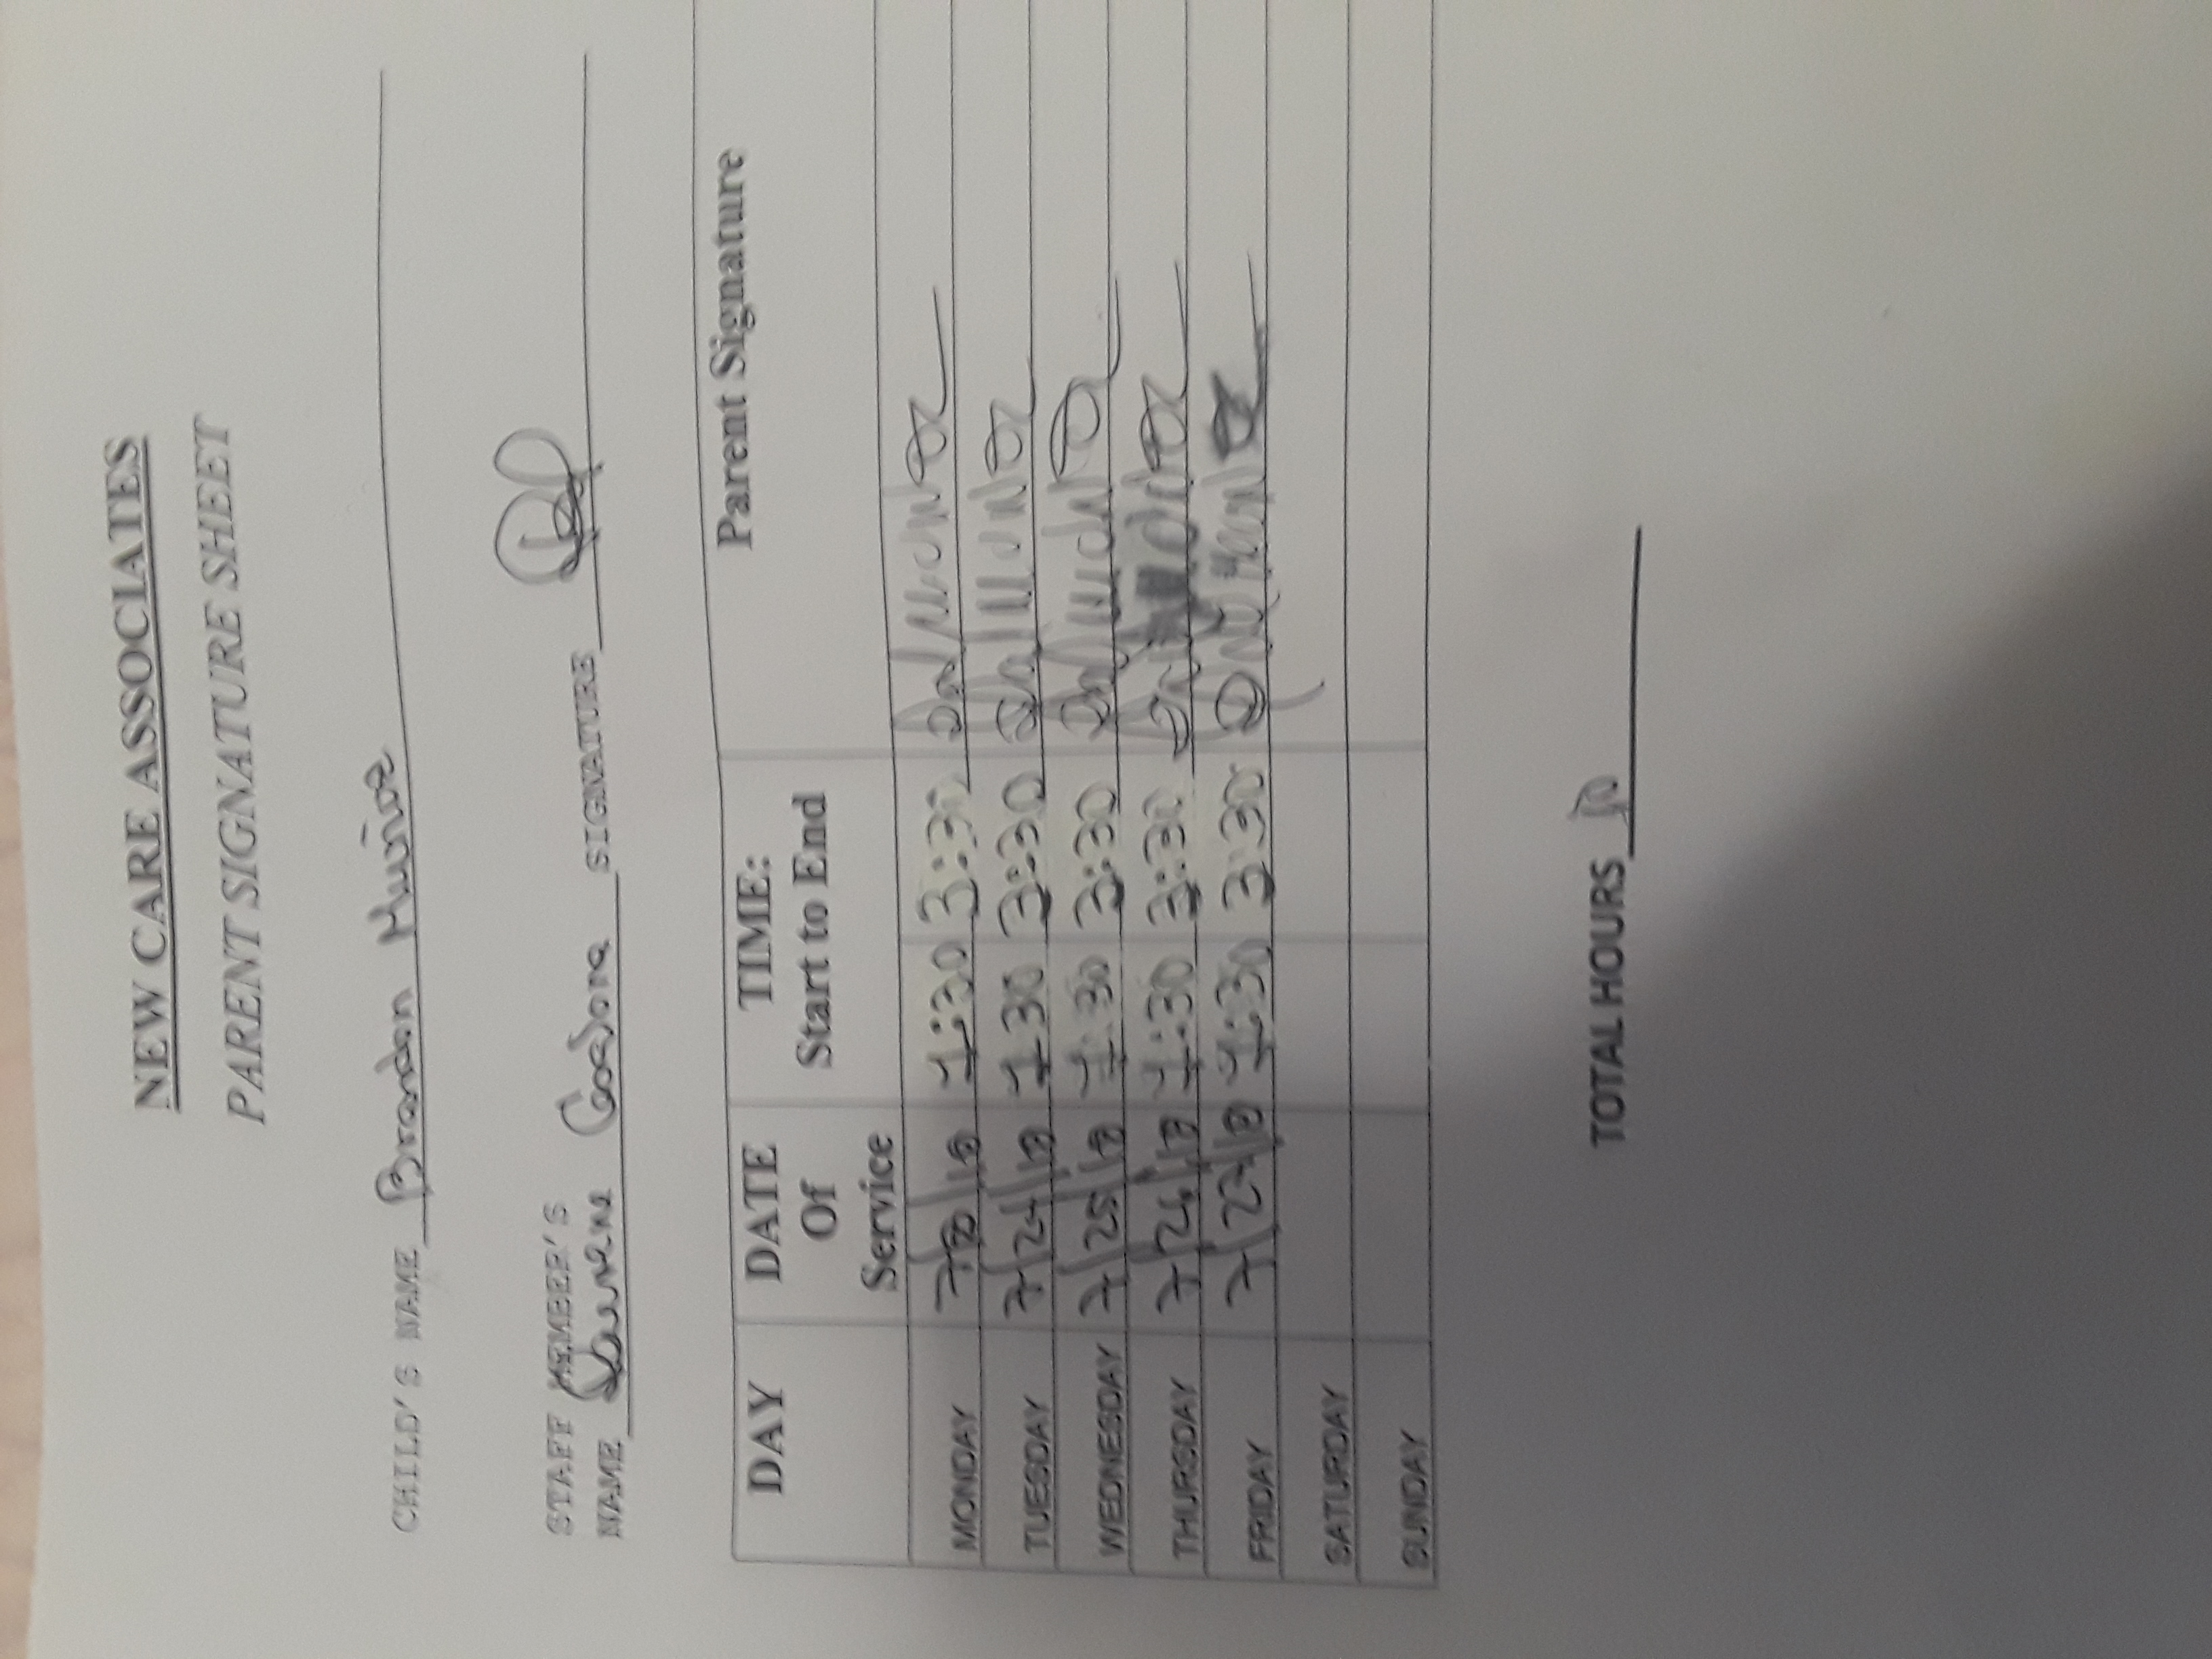 NEW CARE ASSOCIATES
PARENT SIGNATURE SHEET
CHILD'S NAME Brandon Muñoz
STAFF MEMBER'S
NAME SIGNATURE
DAY DATE Of Service TIME: Start to End Parent Signature
MONDAY 1:30 3:30
TUESDAY 7/24/18 1 30 3:30
WEDNESDAY 7/25/18 1:30 3:30
THURSDAY 7/26/18 1:30 3:30
FRIDAY 7/27/18 1:30 3:30
SATURDAY
SUNDAY
TOTAL HOURS 10